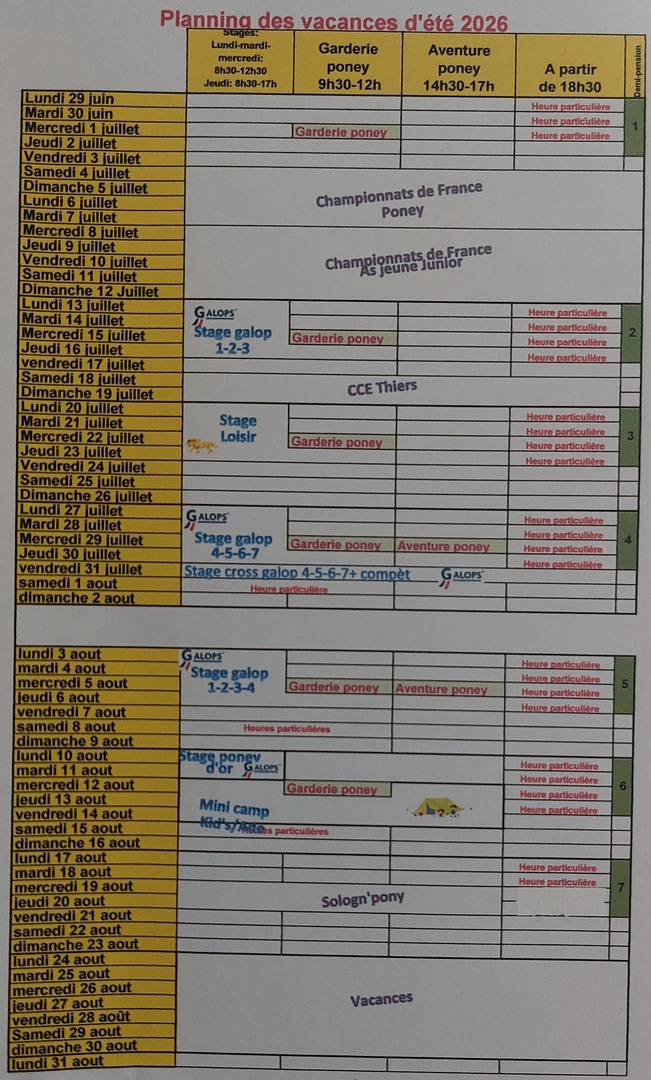 Planning des vacances d'été 2026
Stages:
Lundi-mardi-
mercredi:
8h30-12h30
Jeudi: 8h30-17h
Garderie
poney
9h30-12h
Aventure
poney
14h30-17h
A partir
de 18h30
Demi-pension
Lundi 29 juin Heure particulière
Mardi 30 juin Heure particulière
Mercredi 1 juillet Garderie poney Heure particulière
1
Jeudi 2 juillet
Vendredi 3 juillet
Samedi 4 juillet
Dimanche 5 juillet
Lundi 6 juillet
Mardi 7 juillet
Championnats de France
Poney
Mercredi 8 juillet
Jeudi 9 juillet
Vendredi 10 juillet
Samedi 11 juillet
Dimanche 12 Juillet
Championnats de France
As jeune Junior
Lundi 13 juillet Heure particulière
Mardi 14 juillet Heure particulière
Mercredi 15 juillet Garderie poney Heure particulière
Jeudi 16 juillet Heure particulière
GALOPS
Stage galop
1-2-3
2
vendredi 17 juillet
Samedi 18 juillet
Dimanche 19 juillet
CCE Thiers
Lundi 20 juillet Heure particulière
Mardi 21 juillet Heure particulière
Mercredi 22 juillet Garderie poney Heure particulière
Jeudi 23 juillet Heure particulière
Stage
Loisir
3
Vendredi 24 juillet
Samedi 25 juillet
Dimanche 26 juillet
Lundi 27 juillet Heure particulière
Mardi 28 juillet Heure particulière
Mercredi 29 juillet Garderie poney Aventure poney Heure particulière
Jeudi 30 juillet Heure particulière
GALOPS
Stage galop
4-5-6-7
4
vendredi 31 juillet Stage cross galop 4-5-6-7+ compèt GALOPS
samedi 1 aout Heure particulière
dimanche 2 aout
lundi 3 aout Heure particulière
mardi 4 aout Heure particulière
mercredi 5 aout Garderie poney Aventure poney Heure particulière
jeudi 6 aout Heure particulière
GALOPS
Stage galop
1-2-3-4
5
vendredi 7 aout
samedi 8 aout Heures particulières
dimanche 9 aout
lundi 10 aout Heure particulière
mardi 11 aout Heure particulière
mercredi 12 aout Garderie poney Heure particulière
jeudi 13 aout Heure particulière
Stage poney
d'or GALOPS
6
vendredi 14 aout
Mini camp
Kid's/
samedi 15 aout particulières
dimanche 16 aout
lundi 17 aout Heure particulière
mardi 18 aout Heure particulière
mercredi 19 aout
7
jeudi 20 aout Sologn'pony
vendredi 21 aout
samedi 22 aout
dimanche 23 aout
lundi 24 aout
mardi 25 aout
mercredi 26 aout
jeudi 27 aout
vendredi 28 août
Samedi 29 aout
dimanche 30 aout
Vacances
lundi 31 aout